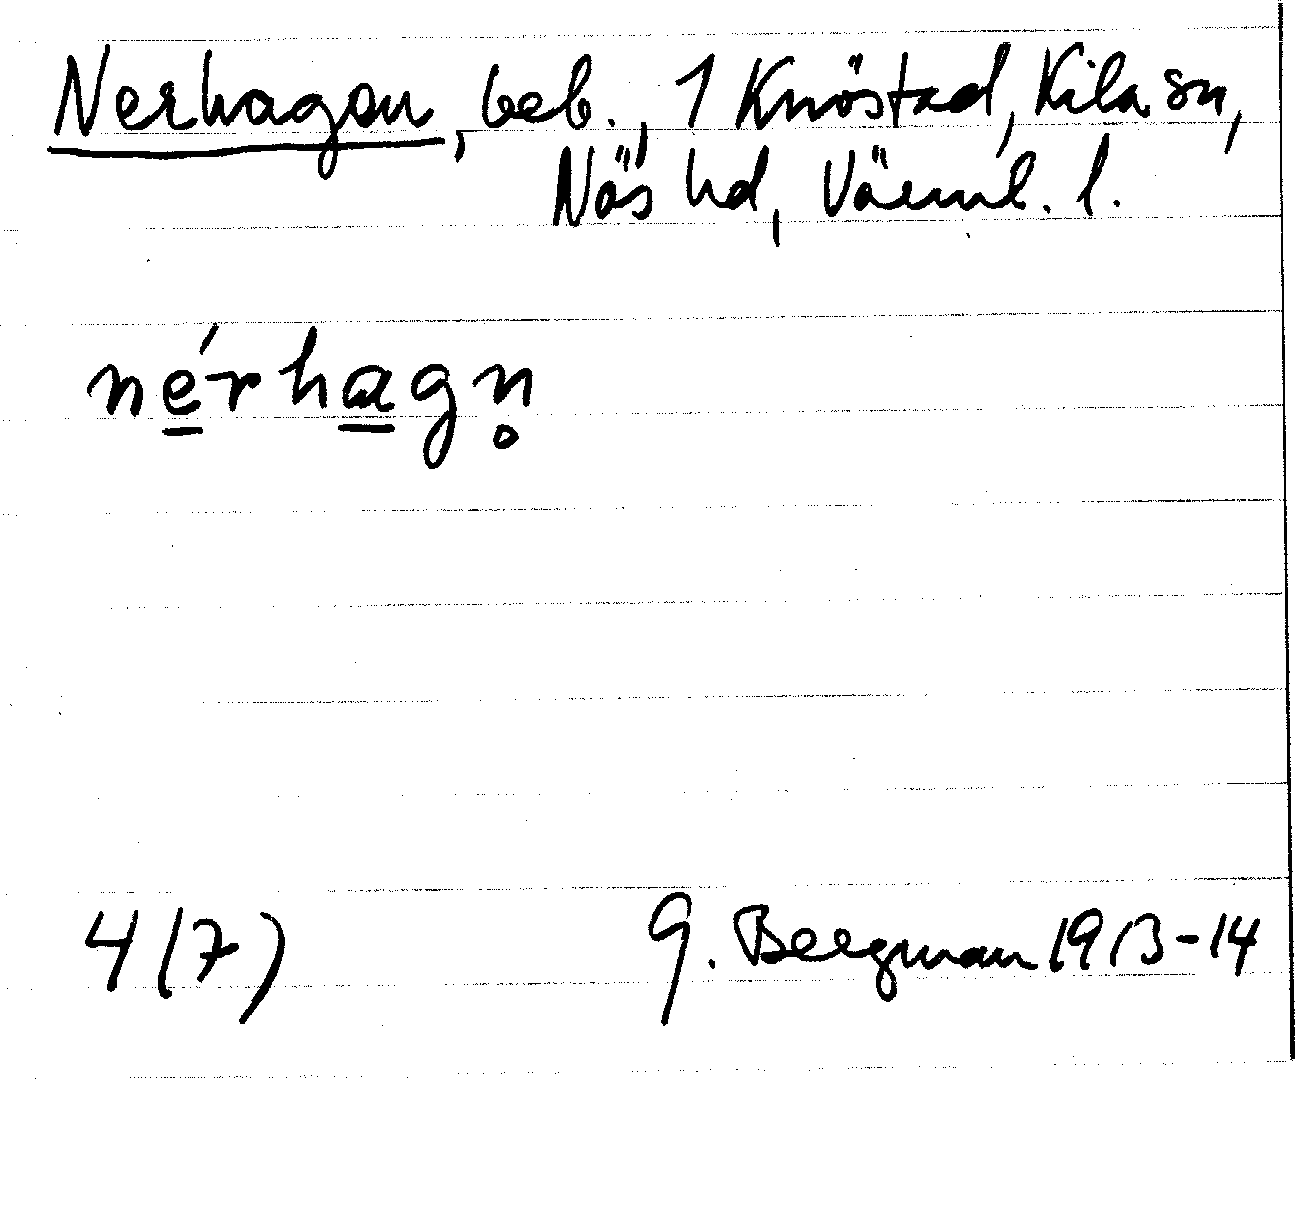 Nerhagen, beb., 1 Knöstad, Kila sn,
Näs hd, Värml. l.
né̱rha̱gn̥
4(7) G. Bergman 1913-14